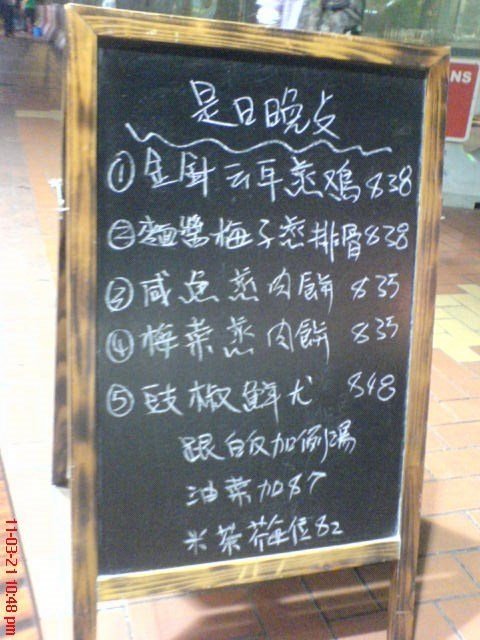 是日晚点
① 金針云耳蒸鸡 $38
② 麵醬梅子蒸排骨 $38
③ 咸鱼蒸肉餅 $35
④ 梅菜蒸肉餅 $35
⑤ 豉椒鮮尤 $48
跟白反加例湯
油菜加$7
米茶芥每位$2
NS
11-03-21 10:48 pm